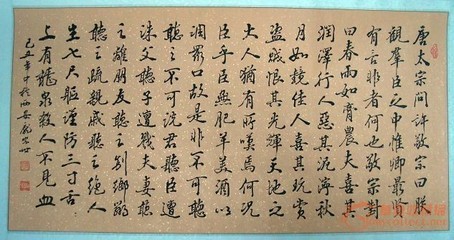 唐太宗問許敬宗曰朕
觀羣臣之中惟卿最賢
有言非者何也敬宗對
曰春雨如膏農夫喜其
潤澤行人惡其泥濘秋
月如鏡佳人喜其玩賞
盜賊恨其光輝天地之
大人猶有時嘆焉何況
臣乎臣無肥羊美酒以
調眾口故是非不可聽
聽之不可說君聽臣遭
誅父聽子遭戮夫妻聽
之離朋友聽之別鄉鄰
聽之疏親戚聽之絕人
生七尺軀謹防三寸舌
上有龍泉殺人不見血
己丑年中秋西安